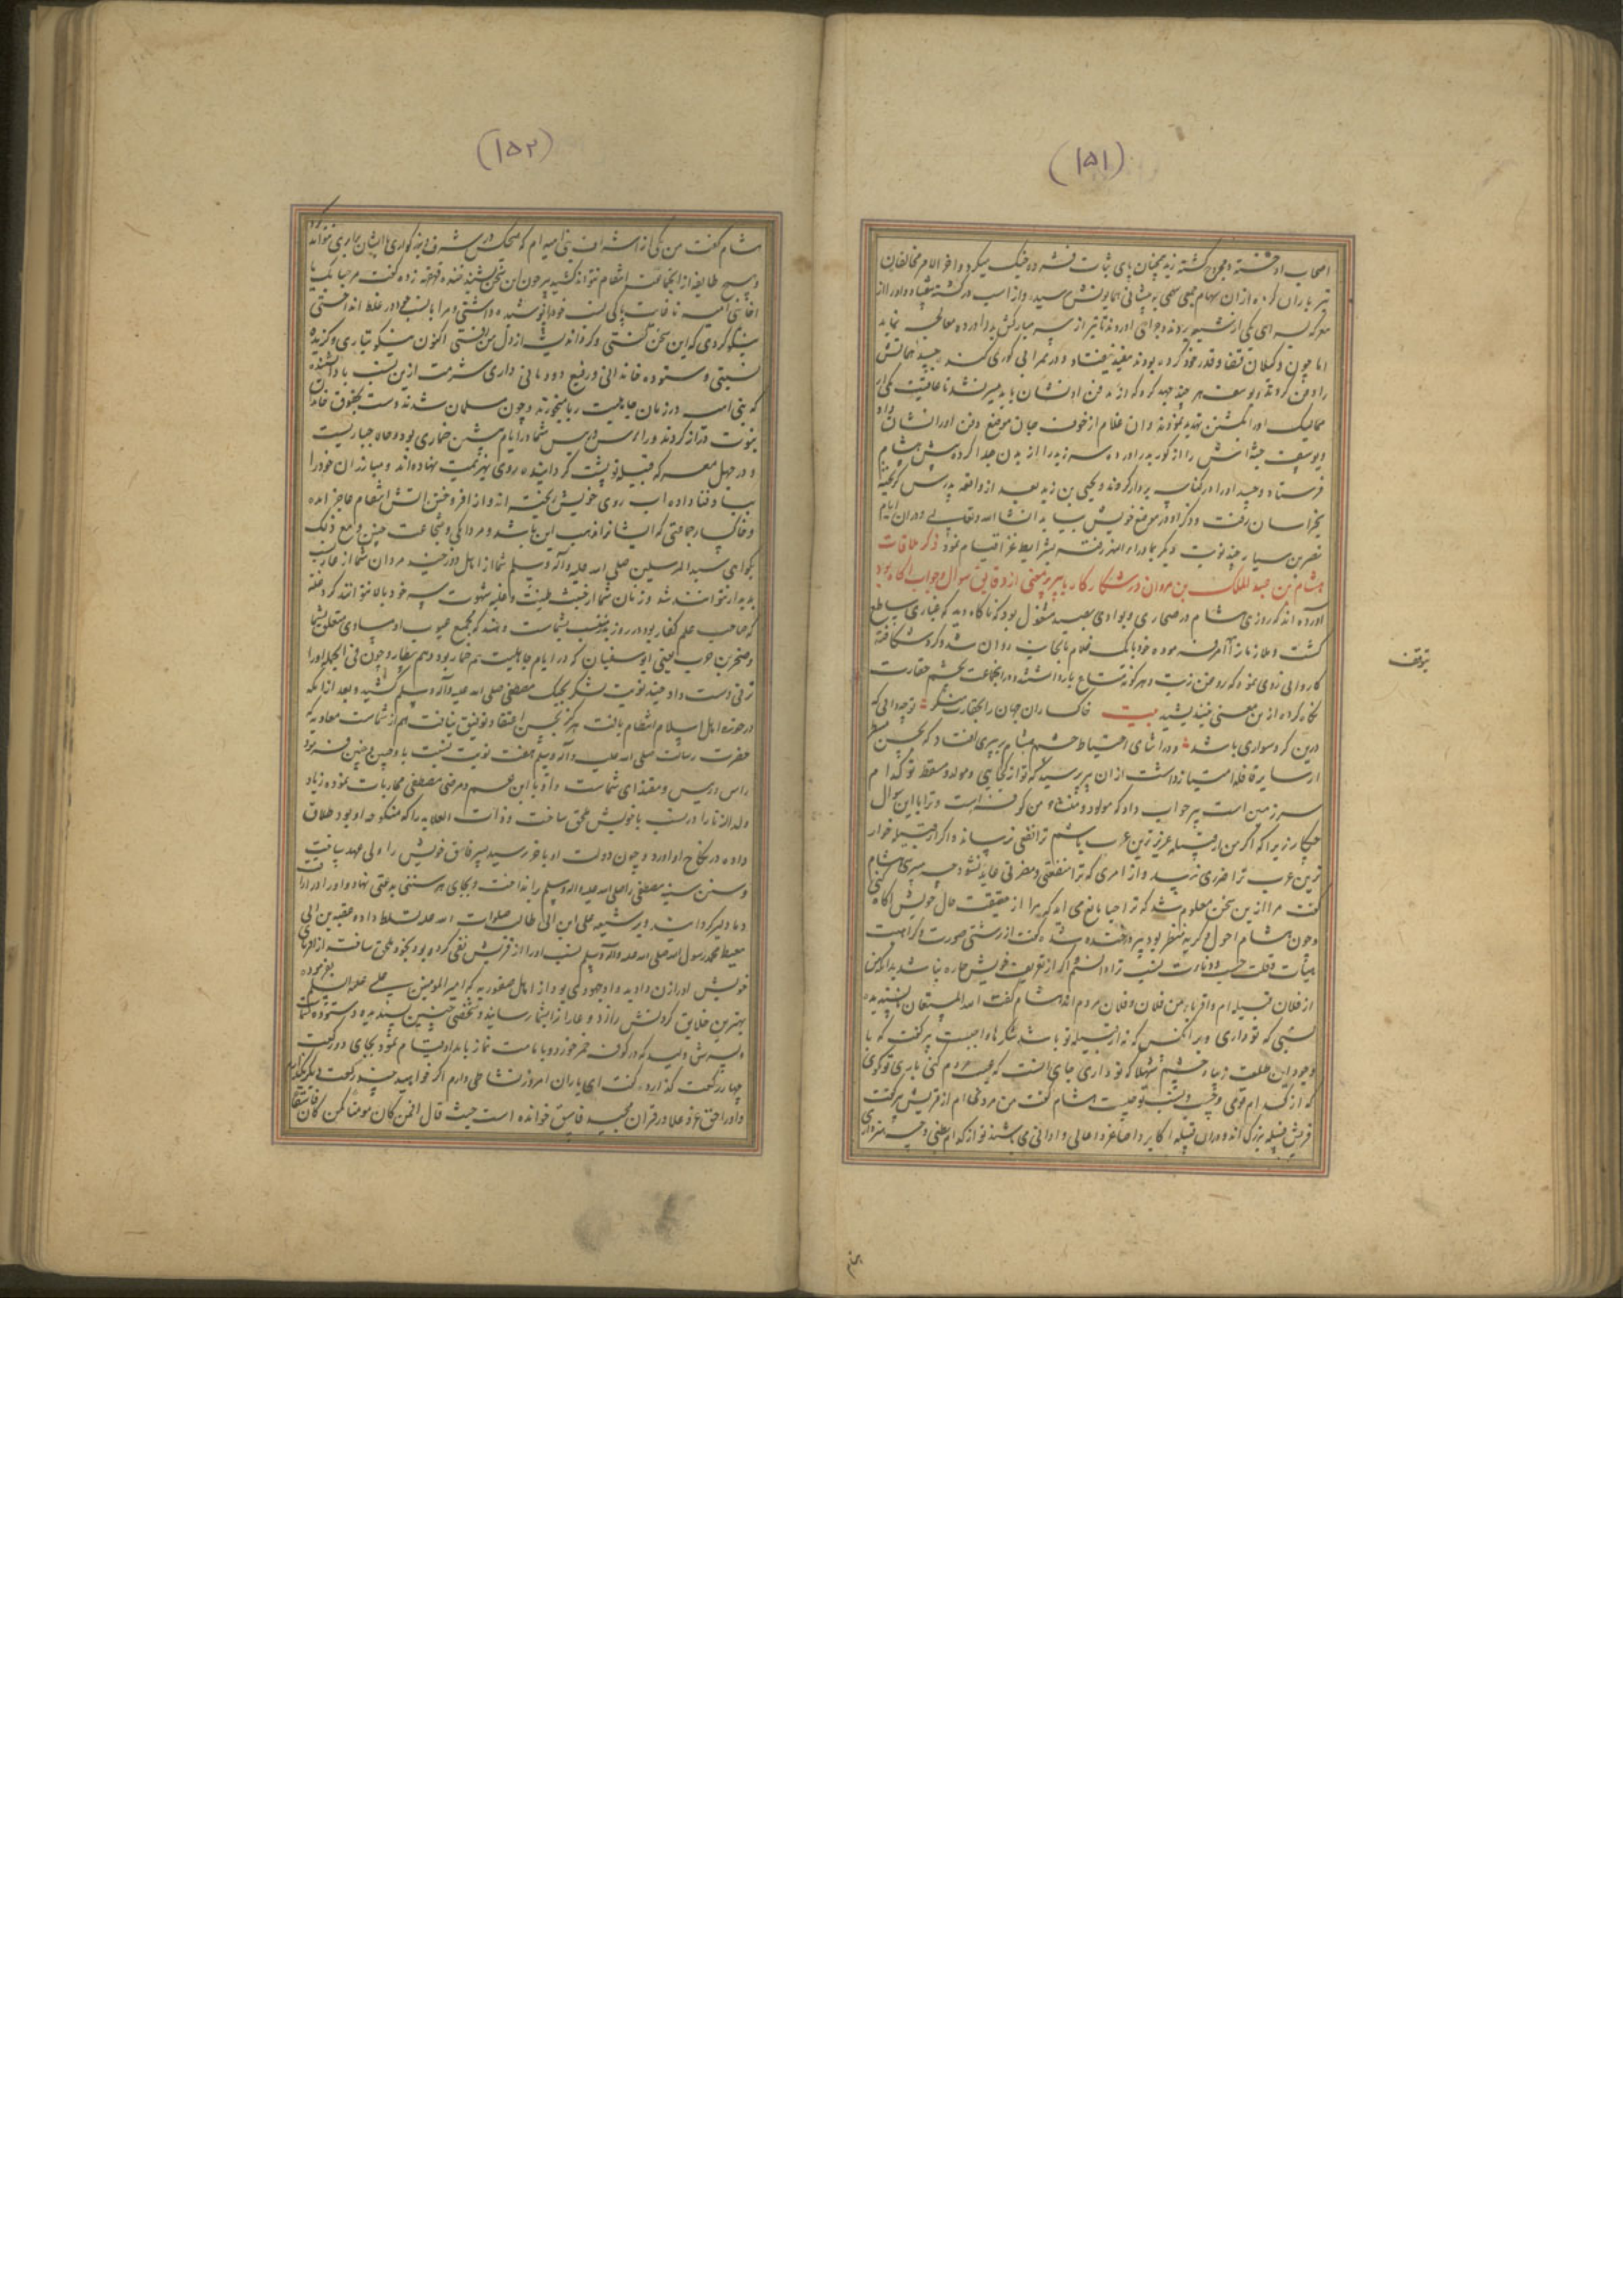 (۱۵۱)
اصحاب او خسته و مجروح گشته زید همچنان پای ثبات فشرده جنگ میکرد و آخر الامر مخالفان
تیر باران از ان سهام سهمی به پیشانی همایونش رسید و از اسب در گشته بیفتاد و اورا از
معرکه بسرای یکی از شیعه بردند و جراحی اوردند تا تیر از سر مبارکش بدر اورده معالجه نماید
اما چون وکیلان قضا و قدر خود کرده بودند مفید نیفتاد و در ممر ابی گوری کنده جسد همانش
را دفن کردند و یوسف هر چند جهد کرد که از مدفن او نشان یابد میسر نشد تا عاقبت یکی از
ممالیک اورا بکشتن تهدید نمودند و ان غلام از خوف جان موضع دفن اورا نشان داد
و یوسف جثه اش را از گور بدر اورده سر زید را از بدن جدا کرده پیش هشام
فرستاد و جسد اورا در کناسه بردار کردند و یحیی بن زید بعد از واقعه پدرش گریخته
بخراسان رفت و ذکر او در موضع خویش بیاید انشاء الله تعالی و در ان ایام
نصر بن سیار چند نوبت دیگر بماوراء النهر رفته بشرایط غزا قیام نمود ذکر ملاقات
هشام بن عبد الملک بن مروان در شکار کار با پیر مردی از دقایق سوال و جواب اگاه بود
آورده اند که روزی هشام در صحاری و بوادی بصید مشغول بود که ناگاه دید که غباری ساطع
گشت و ملازمان را امر فرموده خود با یک غلام بانجانب روان شد و گرد شکافته
کاروانی روی نمود که روغن زیت و هر گونه متاع بار داشتند و در انجماعت بچشم حقارت
نگاه کرده از این معنی نیندیشید بیت خاکساران جهان را بحقارت منگر تو چه دانی که
درین گرد سواری باشد و در اثنای احتیاط چشم هشام بر پیری افتاد که بحسن منظر
از سایر قافله امتیاز داشت از ان پیر پرسید که تو از کجایی و مولد و مسقط تو کدام
سرزمین است پیر جواب داد که مولد و منشاء من کوفه است و ترا با این سوال
چکار زیرا که اگر من از قبیله عزیزترین عرب باشم ترا نفعی نرساند و اگر از قبیله خوار
ترین عرب ترا ضرری نرسد و از امری که ترا منفعتی و مضرتی عاید نشود چه میپرسی هشام
گفت مرا ازین سخن معلوم شد که ترا حیا مانع می اید که مرا از حقیقت حال خویش اگاه کنی
و چون هشام احول و کریه منظر بود پیر در خنده شد گفت از زشتی صورت و کراهت
هیأت و قلت حسب و دنائت نسب ترا دانستم اکر از تعریف خویش چاره نباشد بدانکه من
از فلان قبیله ام و اقربا من فلان و فلان مردم اند هشام گفت الله المستعان ناپسندیده
نسبی که تو داری و بر انکس که نه از قبیله تو باشد شکرها واجبست پیر گفت که با
وجود این طلعت زیبا و چشم شهلا که تو داری جای انست که عیب مردم کنی باری تو گوی
که از کدام قومی و حسب و نسب تو چیست هشام گفت من مردی ام از قریش پیر گفت
قریش قبیله بزرگ اند و در ان قبیله اکابر و اصاغر و اعالی و ادانی می باشند تو از کدام بطنی و چه هنر داری
بتوقف
هشام
(۱۵۲)
هشام گفت من یکی از اشراف بنی امیه ام که هیچکس در شرف و بزرگواری با ایشان برابری نتواند کرد
و هیچ طایفه از انجماعت انتقام نتواند کشید پیر چون این سخن بشنید خنده قهقهه زده گفت مرحبا بک یا
اخا بنی امیه تا غایت پاکی نسب خود را پوشیده داشتی و مرا بانتساب خود در غلط انداختی
نیکو کردی که این سخن گفتی و گره اندیشه از دل من بگشتی اکنون نیکو تباری و گزیده
نسبتی و ستوده خاندانی و رفیع دودمانی داری شرمت ازین نسب باد نشنیده
که بنی امیه در زمان جاهلیت ربا میخوردند و چون مسلمان شدند دست بحقوق خاندان
نبوت دراز کردند و رأس رئیس شما در ایام پیشین خماری بود و حاه جباریست
و در چهل معرکه قبیله تو پشت گردانیده روی بهزیمت نهاده اند و مبارزان خود را
بباد فنا داده اب روی خویش ریخته اند و از افروختن اتش انتقام عاجز امده
و خاکسار جماعتی که ایشانرا مذهب این باشد و مردانگی و شجاعت چنین و مع ذلک
بگواهی سید المرسلین صلی الله علیه و آله و سلم شما از اهل دوزخید مردان شما از عار نسب
پدیدار نتوانند شد و زنان شما از خبث طینت و غلبه شهوت سر خود بالا نتوانند کرد عتبه
که صاحب علم کفار بود در روز بدر منسب بشماست و هند که مجمع عیوب او مساوی متعلق بشما
و صخر بن حرب یعنی ابو سفیان که در ایام جاهلیت هم خمار بود و هم بیطار و چون فی الجمله اورا
ترقی دست داد چند نوبت لشکر بجنگ مصطفی صلی الله علیه و آله و سلم کشید و بعد از انکه
در حوزه اهل اسلام انتظام یافت هرگز بحسن اعتقاد توفیق نیافت هم از شماست معاویه که
حضرت رسالت صلی الله علیه و آله و سلم هفت نوبت نسبت با وی چنین و چنین فرمود
رأس و رئیس و مقتدای شماست و او با ابن عم و مرضی مصطفی محاربات نموده زیاد
ولد الزنا را در نسب با خویش ملحق ساخت و ذات العلایه را که منکوحه او بود طلاق
داده در نکاح او اورد و چون دولت او باخر رسید پسر فاسق خویش را ولی عهد ساخت
و سنن سنیه مصطفی را صلی الله علیه و اله و سلم بر انداخت و بجای هر سنتی بدعتی نهاد و اورا در اراقت
دما دلیر گردانید و بر شیعه علی ابن ابی طالب صلوات الله علیه تسلط داده و عقبه بن ابی
معیط محمد رسول الله صلی الله علیه و آله و سلم نسب اورا از قریش نفی کرده بود بخود ملحق ساخت از اقربای
خویش اورا زن داد و او جهودی بود از اهل صفوریه که امیر المومنین علی علیه السلم بفرموده
بهترین خلایق گردنش را زد و عار انرا بشما رسانید و شخصی چنین پسندیده و ستوده شما
و پسرش ولید که در کوفه خمر خورد و بامامت نماز بامداد قیام نمود بجای دو رکعت
چهار رکعت گذارد گفت ای یاران امروز نشاطی دارم اگر خواهید چند رکعت دیگر بگذاریم
و اورا حق عز و علا در قران مجید فاسق خوانده است حیث قال افمن کان مومنا کمن کان فاسقا